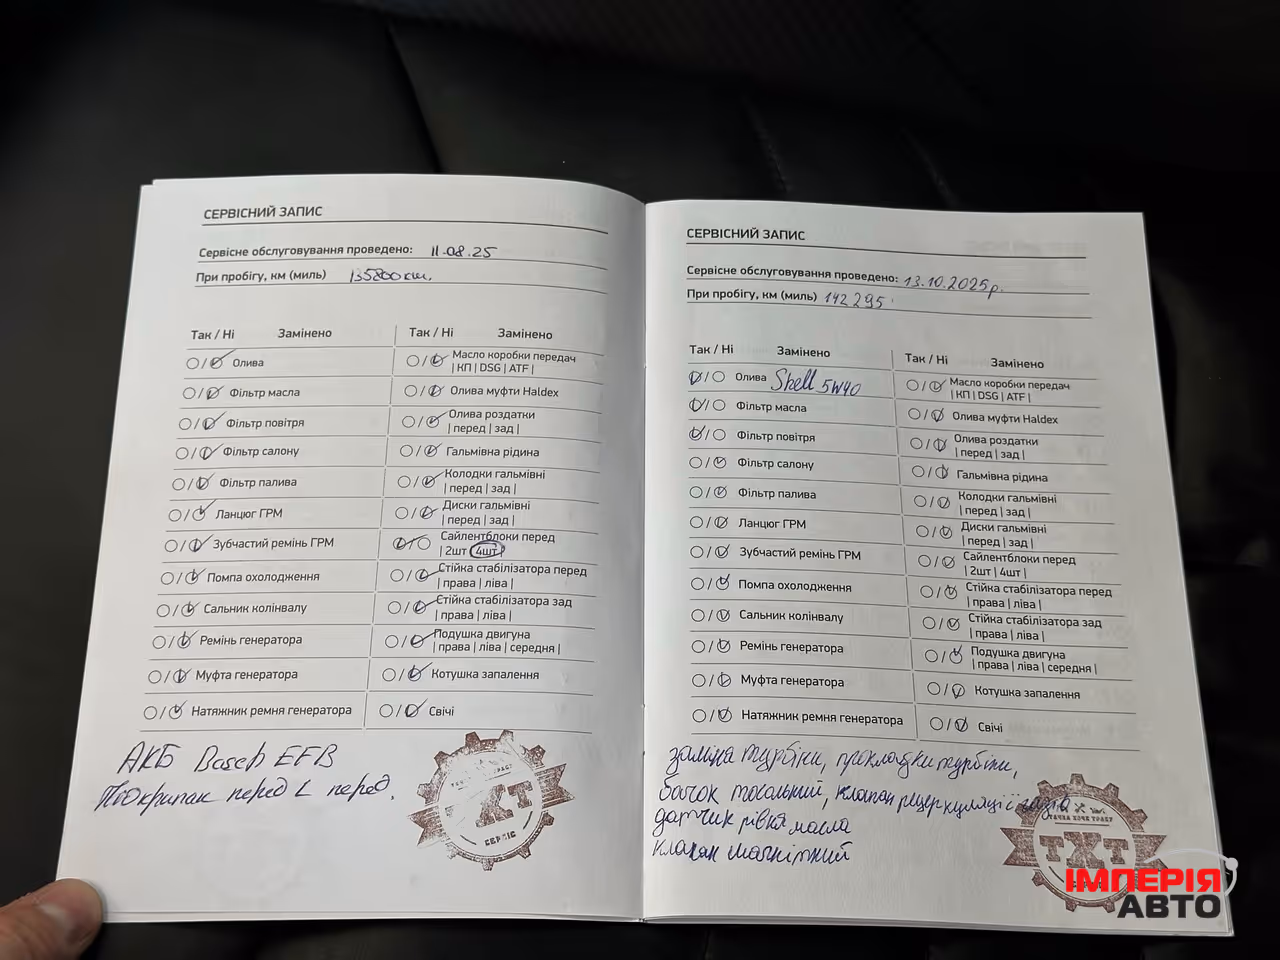 СЕРВІСНИЙ ЗАПИС
Сервісне обслуговування проведено: 11.08.25
При пробігу, км (миль) 135800 км.
Так / Ні Замінено
Олива
Фільтр масла
Фільтр повітря
Фільтр салону
Фільтр палива
Ланцюг ГРМ
Зубчастий ремінь ГРМ
Помпа охолодження
Сальник колінвалу
Ремінь генератора
Муфта генератора
Натяжник ремня генератора
Так / Ні Замінено
Масло коробки передач
| КП | DSG | ATF |
Олива муфти Haldex
Олива роздатки
| перед | зад |
Гальмівна рідина
Колодки гальмівні
| перед | зад |
Диски гальмівні
| перед | зад |
Сайлентблоки перед
| 2шт | 4шт |
Стійка стабілізатора перед
| права | ліва |
Стійка стабілізатора зад
| права | ліва |
Подушка двигуна
| права | ліва | середня |
Котушка запалення
Свічі
АКБ Bosch EFB
Підкрилак перед L перед.
ТХТ
СЕРВІС
СЕРВІСНИЙ ЗАПИС
Сервісне обслуговування проведено: 13.10.2025р.
При пробігу, км (миль) 142295
Так / Ні Замінено
Олива Shell 5W40
Фільтр масла
Фільтр повітря
Фільтр салону
Фільтр палива
Ланцюг ГРМ
Зубчастий ремінь ГРМ
Помпа охолодження
Сальник колінвалу
Ремінь генератора
Муфта генератора
Натяжник ремня генератора
Так / Ні Замінено
Масло коробки передач
| КП | DSG | ATF |
Олива муфти Haldex
Олива роздатки
| перед | зад |
Гальмівна рідина
Колодки гальмівні
| перед | зад |
Диски гальмівні
| перед | зад |
Сайлентблоки перед
| 2шт | 4шт |
Стійка стабілізатора перед
| права | ліва |
Стійка стабілізатора зад
| права | ліва |
Подушка двигуна
| права | ліва | середня |
Котушка запалення
Свічі
заміна турбіни, прокладки турбіни,
бачок тосольний, клапан рециркуляції газів
датчик рівня масла
клапан магнітний
ТАЧКА ХОЧЕ ТРАСУ
ТХТ
ІМПЕРІЯ
АВТО